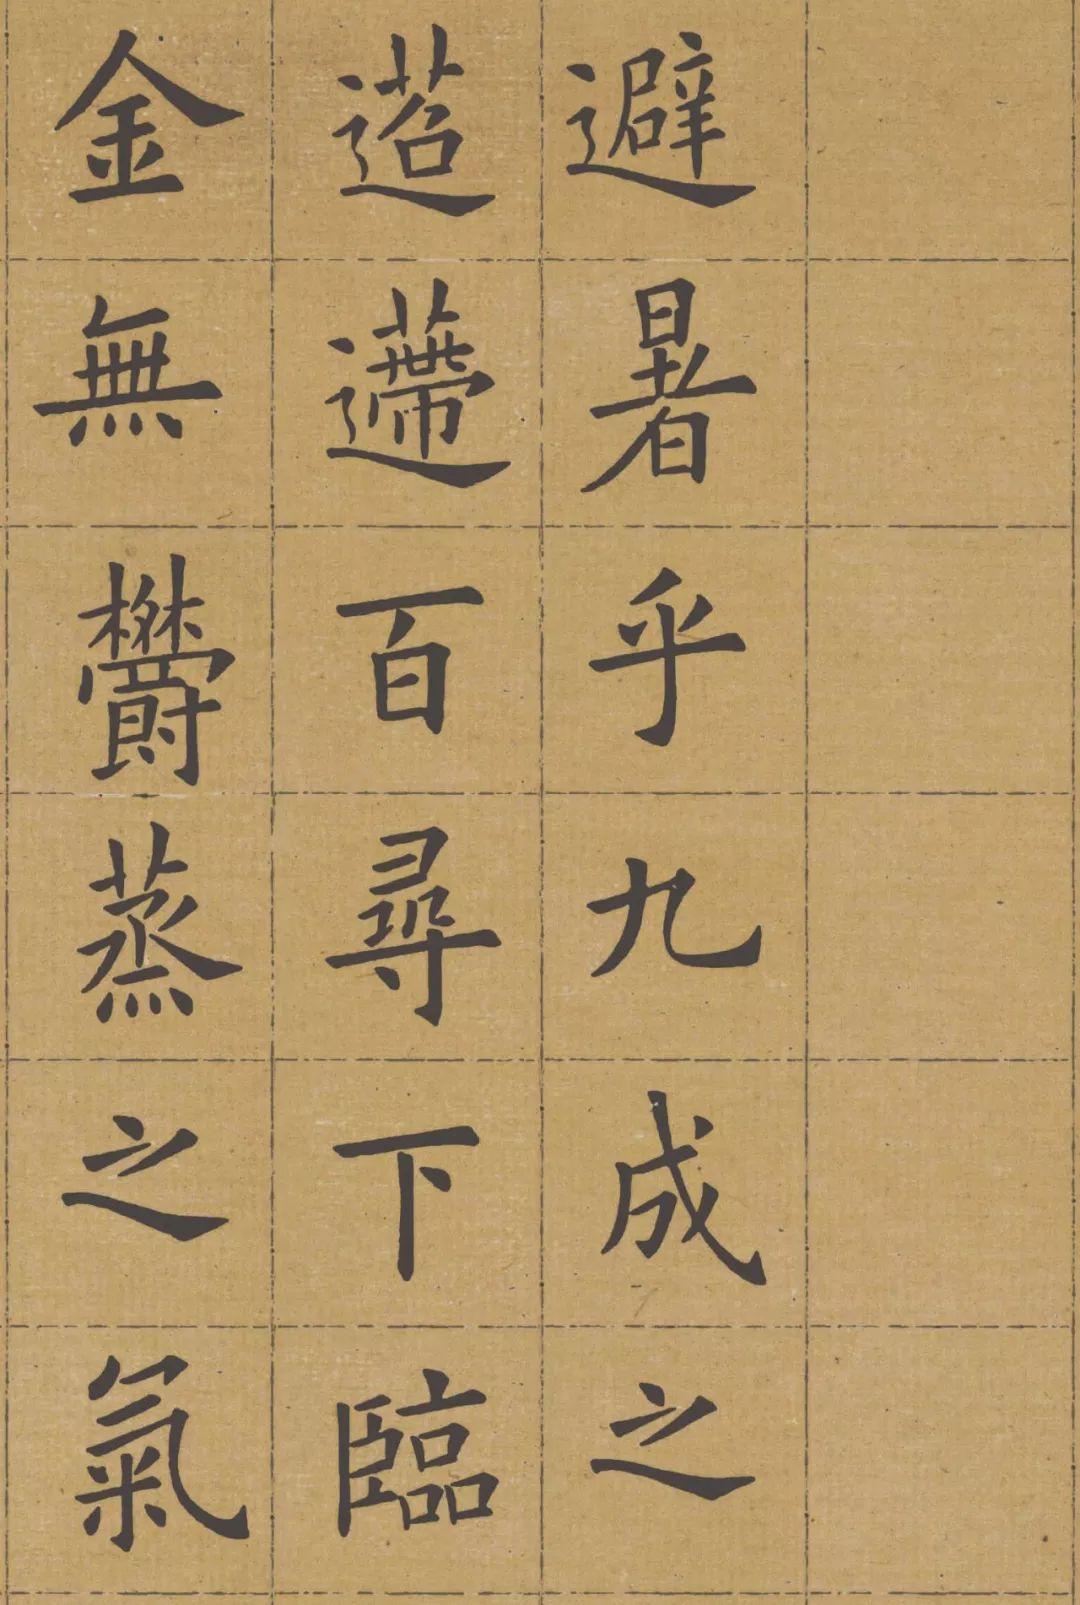 避暑乎九成之
迢遰百尋下臨
金無鬱蒸之氣